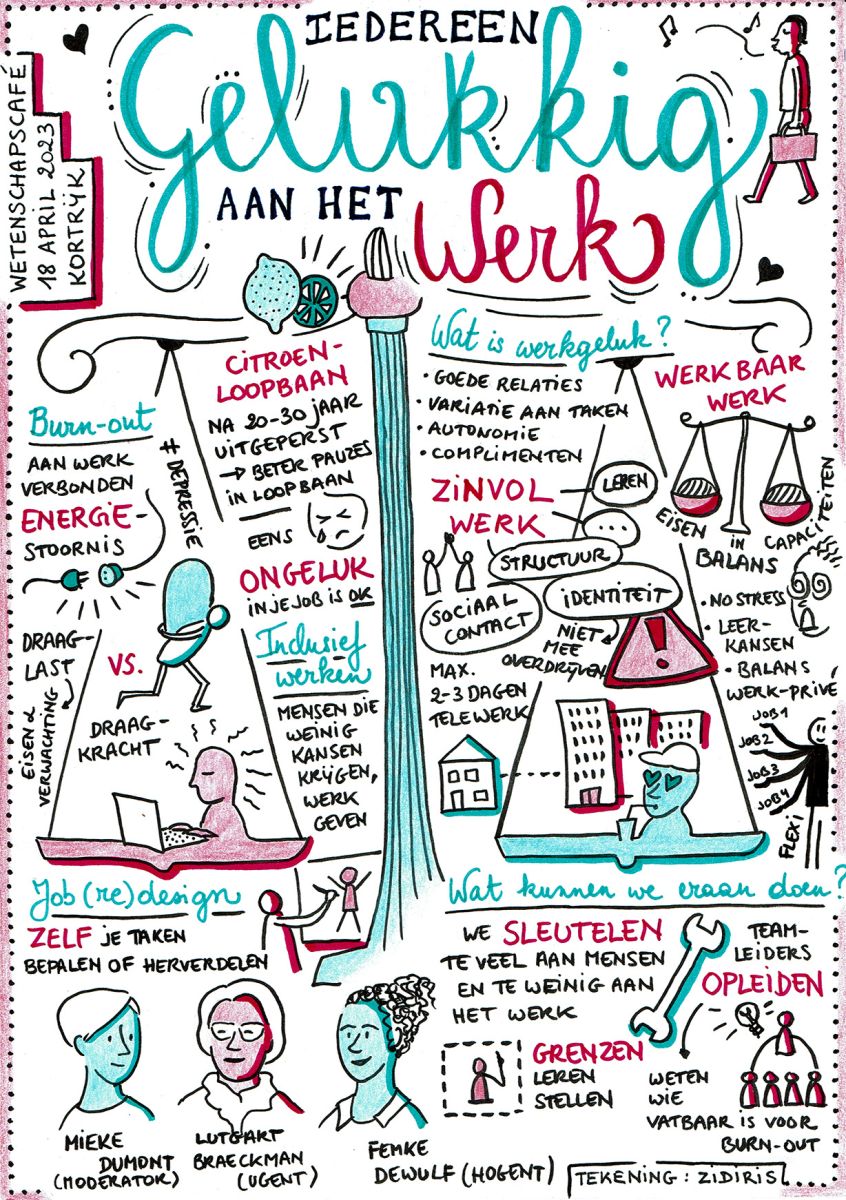 IEDEREEN
Gelukkig
AAN HET
Werk
WETENSCHAPSCAFÉ
18 APRIL 2023
KORTRIJK
Burn-out
AAN WERK
VERBONDEN
ENERGIE-
STOORNIS
# DEPRESSIE
DRAAG-
LAST
VS.
DRAAG-
KRACHT
EISEN &
VERWACHTING
CITROEN-
LOOPBAAN
NA 20-30 JAAR
UITGEPERST
→ BETER PAUZES
IN LOOPBAAN
EENS
ONGELUK
IN JE JOB IS OK
Inclusief
werken
MENSEN DIE
WEINIG
KANSEN
KRIJGEN,
WERK
GEVEN
Wat is werkgeluk?
• GOEDE RELATIES
• VARIATIE AAN TAKEN
• AUTONOMIE
• COMPLIMENTEN
ZINVOL
WERK
LEREN
...
STRUCTUUR
IDENTITEIT
SOCIAAL
CONTACT
NIET
MEE
OVERDRIJVEN
!
MAX.
2-3 DAGEN
TELEWERK
WERKBAAR
WERK
EISEN
IN
BALANS
CAPACITEITEN
• NO STRESS
• LEER-
KANSEN
• BALANS
WERK-PRIVÉ
JOB 1
JOB 2
JOB 3
JOB 4
FLEXI
Job (re)design
ZELF JE TAKEN
BEPALEN OF HERVERDELEN
Wat kunnen we eraan doen?
WE SLEUTELEN
TE VEEL AAN MENSEN
EN TE WEINIG AAN
HET WERK
TEAM-
LEIDERS
OPLEIDEN
GRENZEN
LEREN
STELLEN
WETEN
WIE
VATBAAR IS VOOR
BURN-OUT
MIEKE
DUMONT
(MODERATOR)
LUTGART
BRAECKMAN
(UGENT)
FEMKE
DEWULF (HOGENT)
TEKENING: ZIDIRIS